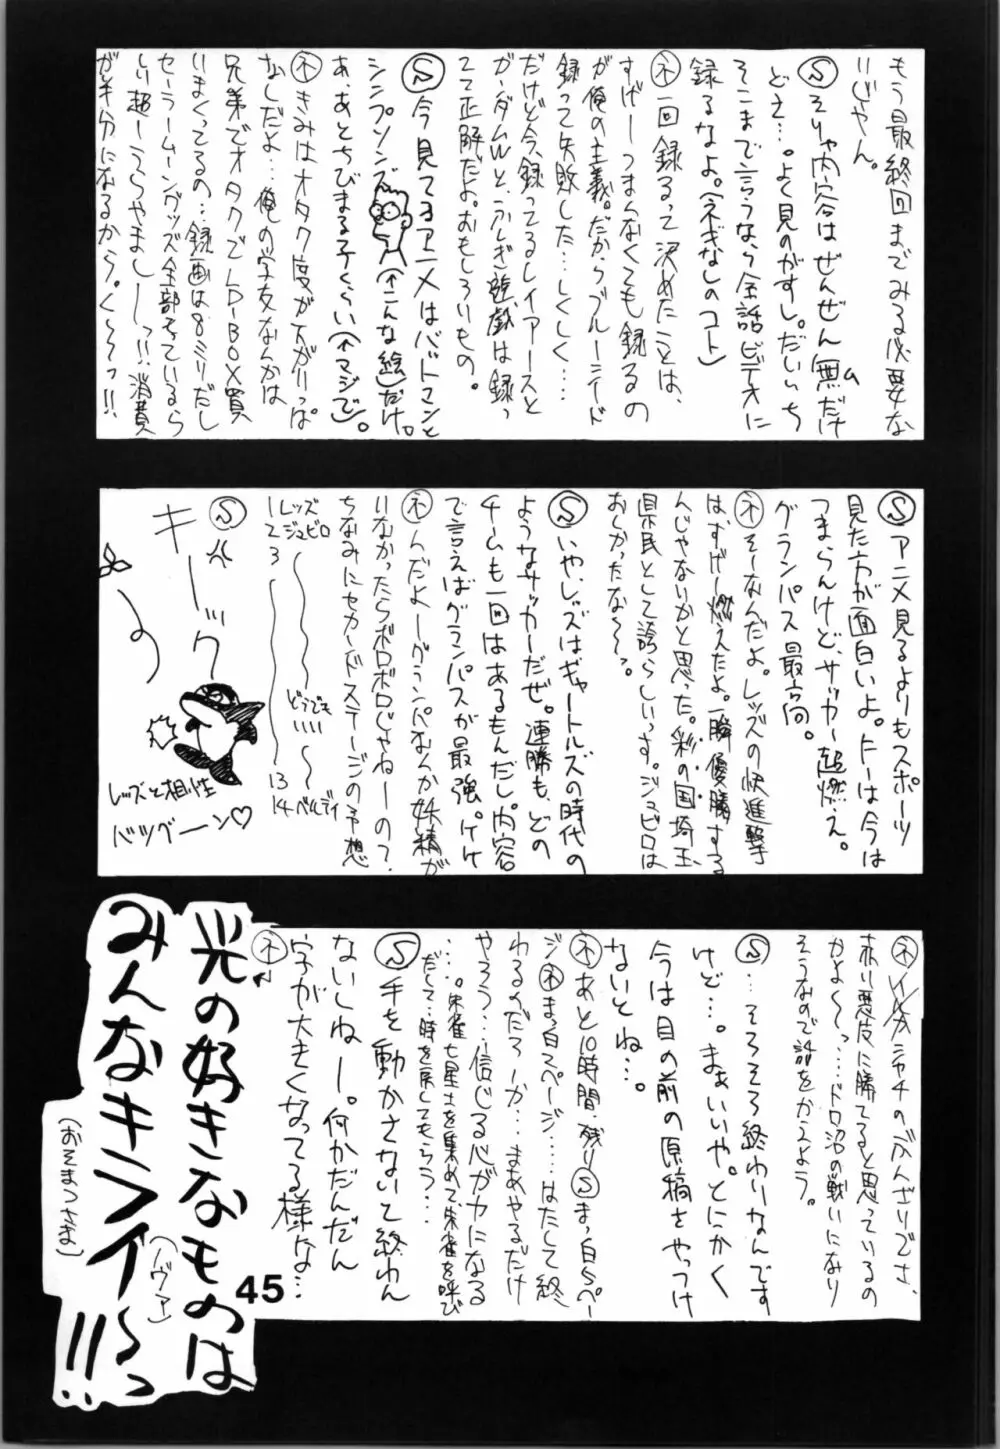 もう最終回までみる必要な
いじゃん。
Ⓢそりゃ内容はぜんぜん無(ム)だけ
どさ…。よく見のがすし。だいいち
そこまで言うなら全話ビデオに
録るなよ。(ネぎなしのコト)
ネ一回録るって決めたことは、
すげーつまんなくても録るの
が俺の主義。だからブルーシード
録って失敗した…しくしく…。
だけど今、録ってるレイアースと
ガンダムWと、ふしぎ遊戯は録っ
てて正解だよ。おもしろいもの。
Ⓢ今見てるアニメはバットマンと
シンプソンズ(↑こんな絵)だけ。
あ、あとちびまる子くらい(↑マジで)。
ネきみはオタク度が下がりっぱ
なしだよ…俺の学友なんかは
兄弟でオタクでLD-BOX買
いまくってるの…録画は8ミリだし
セーラームーングッズ全部そろっているら
しい超ーうらやましーーっ!!消費
が半分になるから。く〜っ!!
Ⓢアニメ見るよりもスポーツ
見た方が面白いよ。Fーは今は
つまらんけど、サッカー超燃え。
グランパス最高。
ネそーなんだよ。レッズの快進撃
はすげー燃えたよ。一瞬優勝する
んじゃないかと思った。彩の国埼玉
県民として誇らしいっす。ジュビロは
おしかったな〜っ。
Ⓢいや、レッズはギャートルズの時代の
ようなサッカーだぜ。連勝も、どの
チームも一回はあるもんだし、内容
で言えばグランパスが最強。ケケ
ネんだよーグランパなんか妖精が
いなかったらボロボロじゃねーの?
ちなみにセカンドステージの予想
1 レッズ
2 ジュビロ
3 〜どうでもいい〜 13
14 ベルディ
Ⓢ
キーック
レッズと相性
バツグーン♡
赤い悪皮に勝てると思っているの
かよ〜っ…ドロ沼の戦いになり
そうなので話をかえよう。
Ⓢ…そろそろ終わりなんです
けど…。まぁいいや。とにかく
今は目の前の原稿をやっつけ
ないとね…。
ネあと10時間・残りⓈまっ白5ペー
ジネまっ白スページ…はたして終
わるのだろーか…まあやるだけ
やろう…信じる心が力になる
…。朱雀七星士を集めて朱雀を呼び
だして…時を戻してもらう…
Ⓢ手を動かさないで終わん
ないしねー。何かだんだん
字が大きくなってる様な…
ネ
光の好きなものは
みんなキライ〜っ!!
(ノヴァ)
(おそまつさま)
45